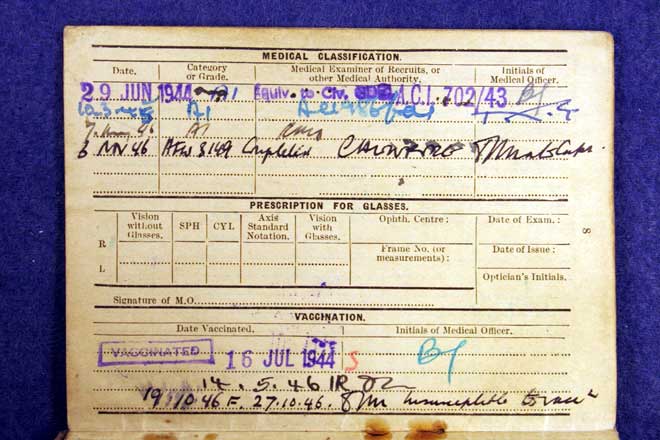 MEDICAL CLASSIFICATION.
Date. Category or Grade. Medical Examiner of Recruits, or other Medical Authority. Initials of Medical Officer.
29 JUN 1944 A1 Equiv. to Civ. A.C.I. 702/43 BJ
A1
46 A1
46 AFW 3149 Completed
PRESCRIPTION FOR GLASSES.
Vision without Glasses. SPH CYL Axis Standard Notation. Vision with Glasses. Ophth. Centre: Date of Exam.:
R
Frame No. (or measurements): Date of Issue:
L
Optician's Initials.
Signature of M.O.
8
VACCINATION.
Date Vaccinated. Initials of Medical Officer.
VACCINATED 16 JUL 1944 S BJ
14.5.46 IR
19.10.46 F. 27.10.46. Insusceptible to vacc